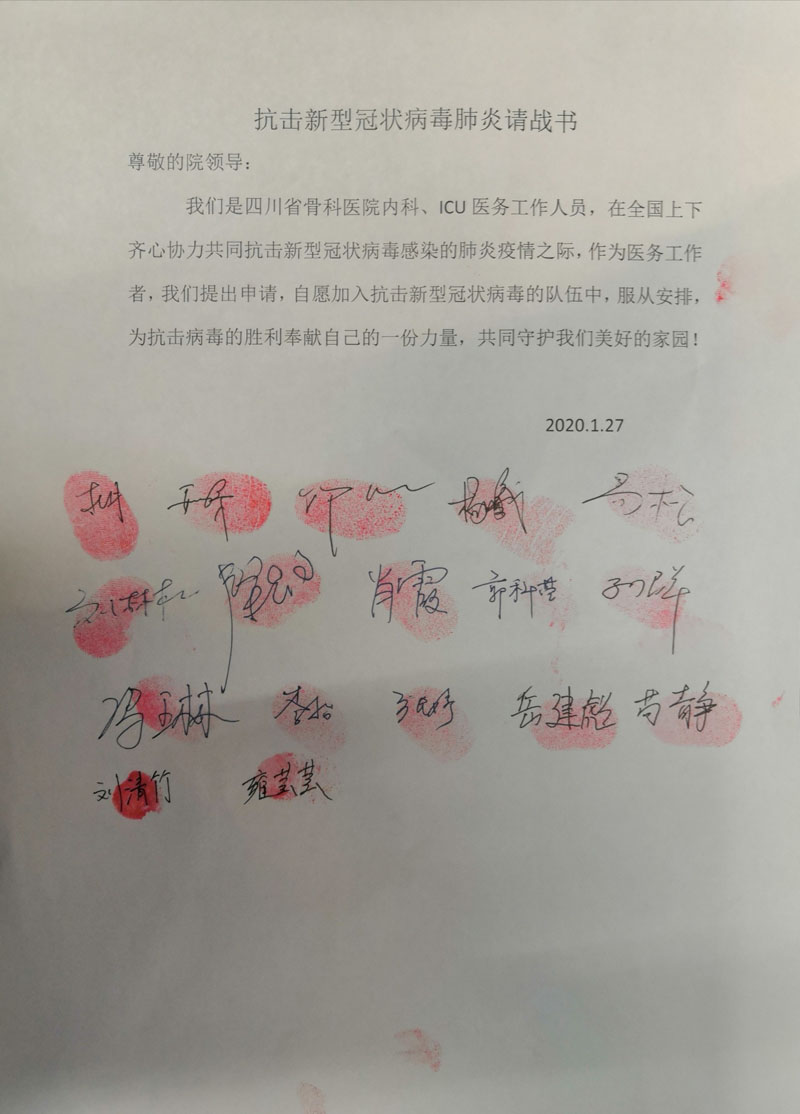 抗击新型冠状病毒肺炎请战书
尊敬的院领导：
我们是四川省骨科医院内科、ICU 医务工作人员，在全国上下
齐心协力共同抗击新型冠状病毒感染的肺炎疫情之际，作为医务工作
者，我们提出申请，自愿加入抗击新型冠状病毒的队伍中，服从安排，
为抗击病毒的胜利奉献自己的一份力量，共同守护我们美好的家园！
2020.1.27
易松
肖霞 郭科莹
冯玉琳 岳建彪 苟静
刘清竹 雍芸芸